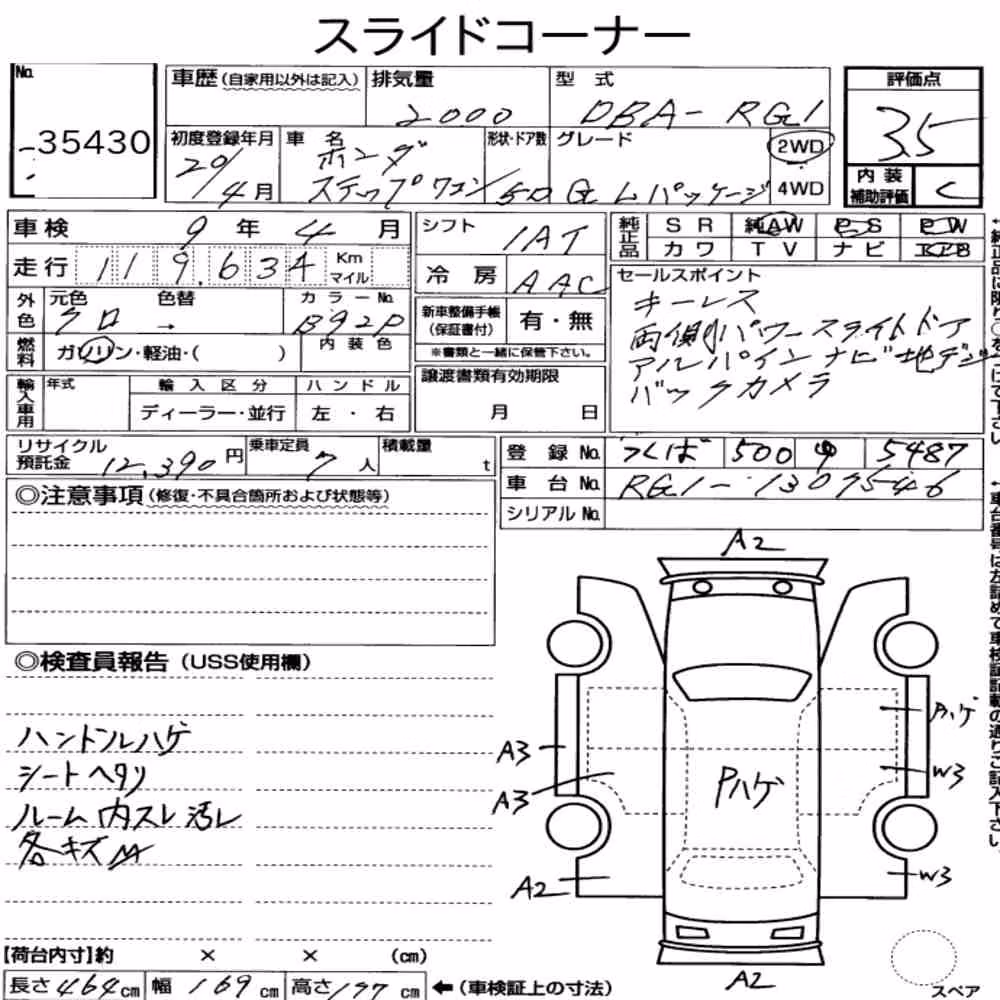 スライドコーナー
No. 35430
車歴(自家用以外は記入) 排気量 2000 型式 DBA-RG1
初度登録年月 20/4月 車名 ホンダ ステップワゴン 形状・ドア数 5D グレード G Lパッケージ 2WD 4WD
評価点 3.5
内装補助評価 C
車検 9年 4月
走行 119,634 Km マイル
外色 元色 クロ 色替 → カラーNo. B92P
燃料 ガソリン・軽油・( ) 内装色
輸入車用 年式 輸入区分 ディーラー・並行 ハンドル 左・右
シフト IAT
冷房 AAC
新車整備手帳(保証書付) 有・無
※書類と一緒に保管下さい。
譲渡書類有効期限
月 日
純正品 SR 純AW PS PW
カワ TV ナビ エアB
セールスポイント
キーレス
両側パワースライドドア
アルパインナビ地デジ
バックカメラ
リサイクル預託金 12,390円 乗車定員 7人 積載量 t
登録No. つくば 500 ゆ 5487
車台No. RG1-1309546
シリアルNo.
◎注意事項(修復・不具合箇所および状態等)
◎検査員報告(USS使用欄)
ハンドルハゲ
シートヘタリ
ルーム内スレ汚レ
各キズ
A2
Pハゲ
A3
W3
A3
Pハゲ
W3
A2
A2
スペア
【荷台内寸】約 × × (cm)
長さ464cm 幅169cm 高さ177cm ←(車検証上の寸法)